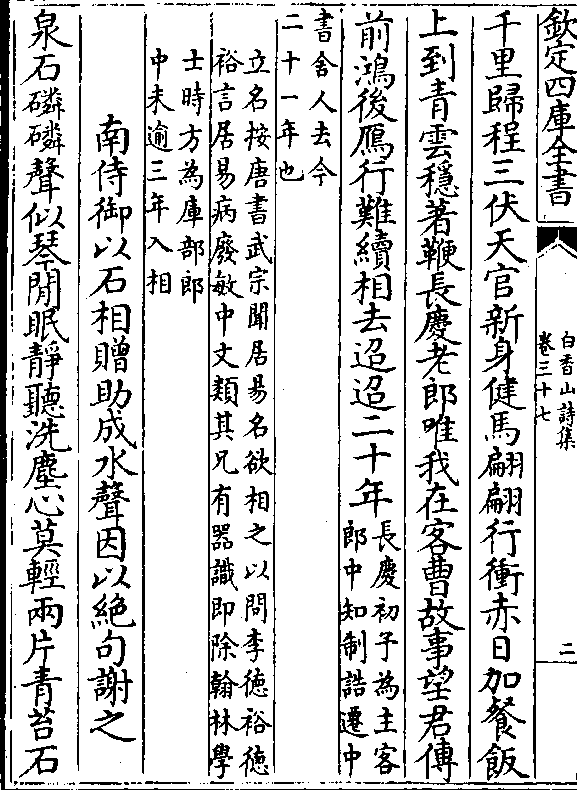 欽定四庫全書
白香山詩集
卷三十七
二
千里歸程三伏天官新身健馬翩翩行衝赤日加餐飯
上到青雲穩著鞭長慶老郎唯我在客曹故事望君傳
前鴻後鴈行難續相去迢迢二十年
長慶初予為主客
郎中知制誥遷中
書舍人去今
二十一年也
立名按唐書武宗聞居易名欲相之以問李德裕德
裕言居易病廢敏中文類其兄有器識即除翰林學
士時方為庫部郎
中未逾三年入相
南侍御以石相贈助成水聲因以絶句謝之
泉石磷磷聲似琴閒眠靜聽洗塵心莫輕兩片青苔石